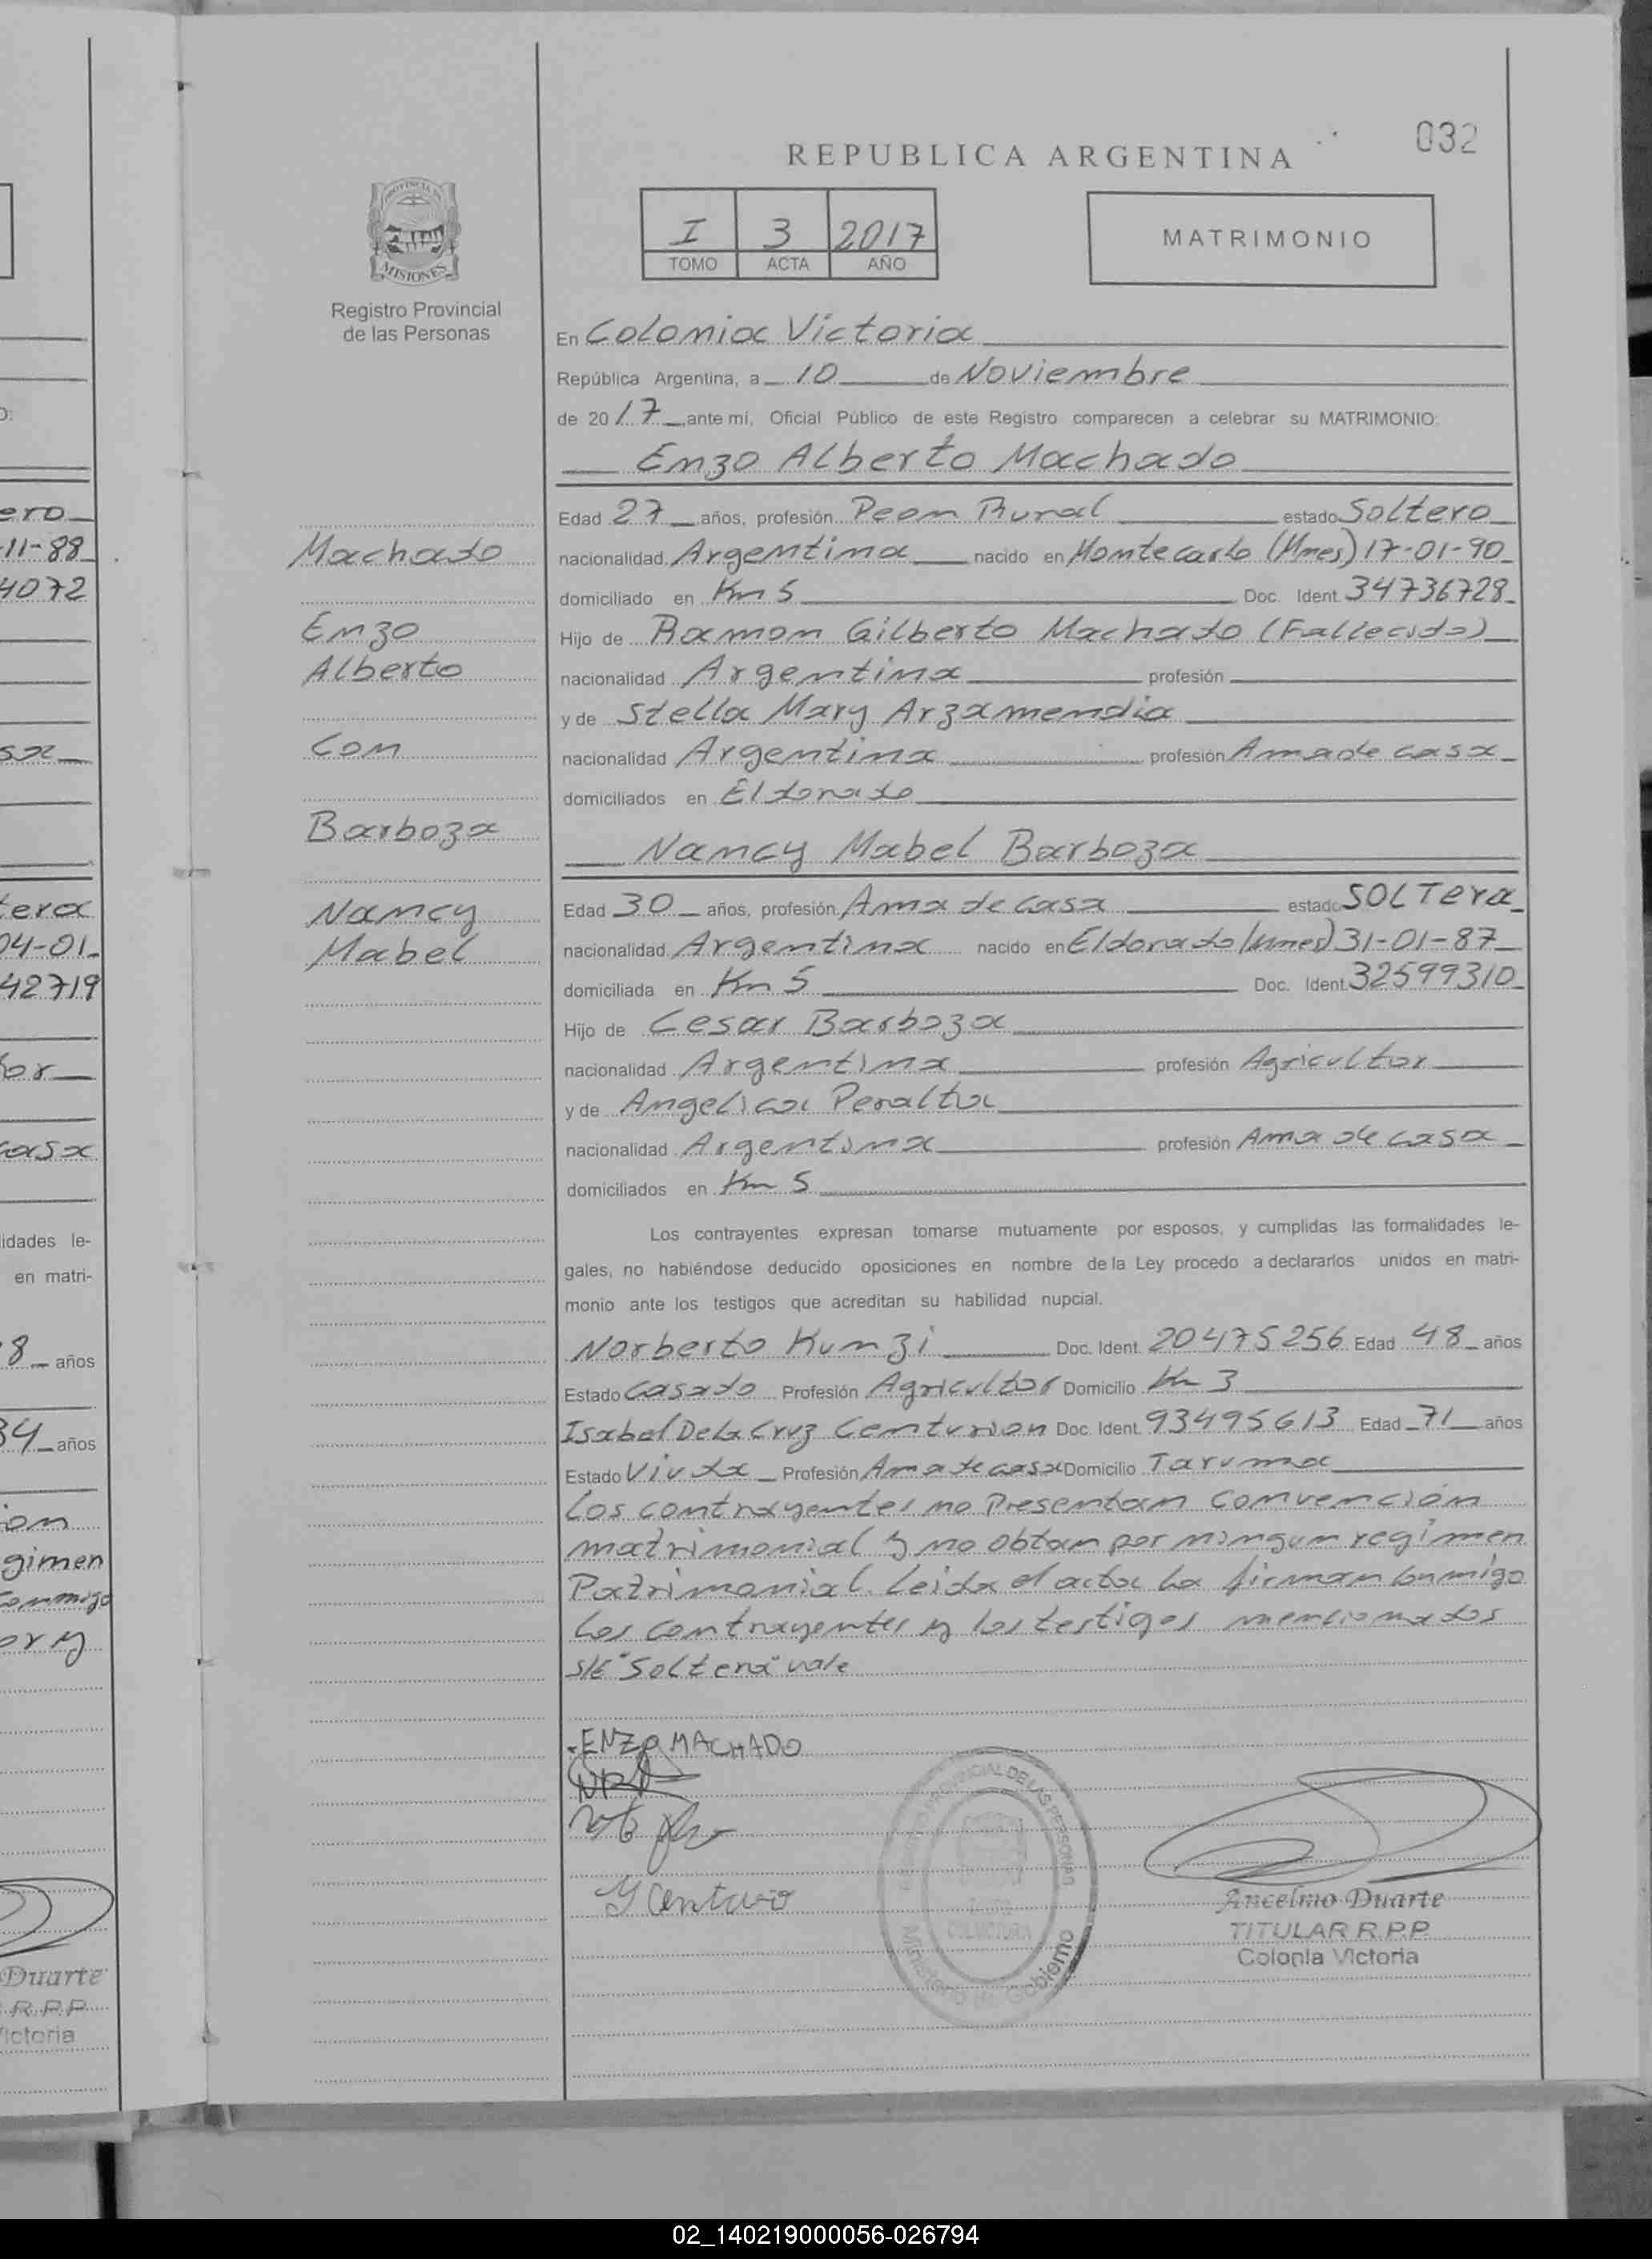 032
REPUBLICA ARGENTINA
I 3 2017
TOMO ACTA AÑO
MATRIMONIO
MISIONES
Registro Provincial
de las Personas
En Colonia Victoria
República Argentina, a 10 de Noviembre
de 2017 ante mi, Oficial Público de este Registro comparecen a celebrar su MATRIMONIO:
Enzo Alberto Machado
Edad 27 años, profesión Peon Rural estado Soltero
Machado
nacionalidad Argentina nacido en Montecarlo (Mnes) 17-01-90
domiciliado en Km 5 Doc. Ident. 34736728
Enzo
Hijo de Ramon Gilberto Machado (Fallecido)
Alberto
nacionalidad Argentina profesión
y de Stella Mary Arzamendia
Con
nacionalidad Argentina profesión Ama de casa
domiciliados en Eldorado
Barboza
Nancy Mabel Barboza
Nancy
Edad 30 años, profesión Ama de casa estado SOLTera
Mabel
nacionalidad Argentina nacido en Eldorado (Mnes) 31-01-87
domiciliada en Km 5 Doc. Ident. 32599310
Hijo de Cesar Barboza
nacionalidad Argentina profesión Agricultor
y de Angelica Peralta
nacionalidad Argentina profesión Ama de casa
domiciliados en Km 5
Los contrayentes expresan tomarse mutuamente por esposos, y cumplidas las formalidades le-
gales, no habiéndose deducido oposiciones en nombre de la Ley procedo a declararlos unidos en matri-
monio ante los testigos que acreditan su habilidad nupcial.
Norberto Kunzi Doc. Ident. 20475256 Edad 48 años
Estado Casado Profesión Agricultor Domicilio Km 3
Isabel De La Cruz Centurion Doc. Ident. 93495613 Edad 71 años
Estado Viuda Profesión Ama de casa Domicilio Taruma
Los contrayentes no Presentan Convención
matrimonial y no obtan por ningun regimen
Patrimonial. Leida el acta la firman Conmigo
los contrayentes y los testigos mencionados
S/E "Soltera" vale
ENZO MACHADO
Y Centurio
REGISTRO PROVINCIAL DE LAS PERSONAS
Ministerio de Gobierno
Ancelmo Duarte
TITULAR R.P.P.
Colonia Victoria
ero
-11-88
4072
tera
04-01
42719
or
casa
idades le-
en matri-
8 años
34 años
ion
gimen
Conmigo
or y
Duarte
R.P.P.
Victoria
02_140219000056-026794